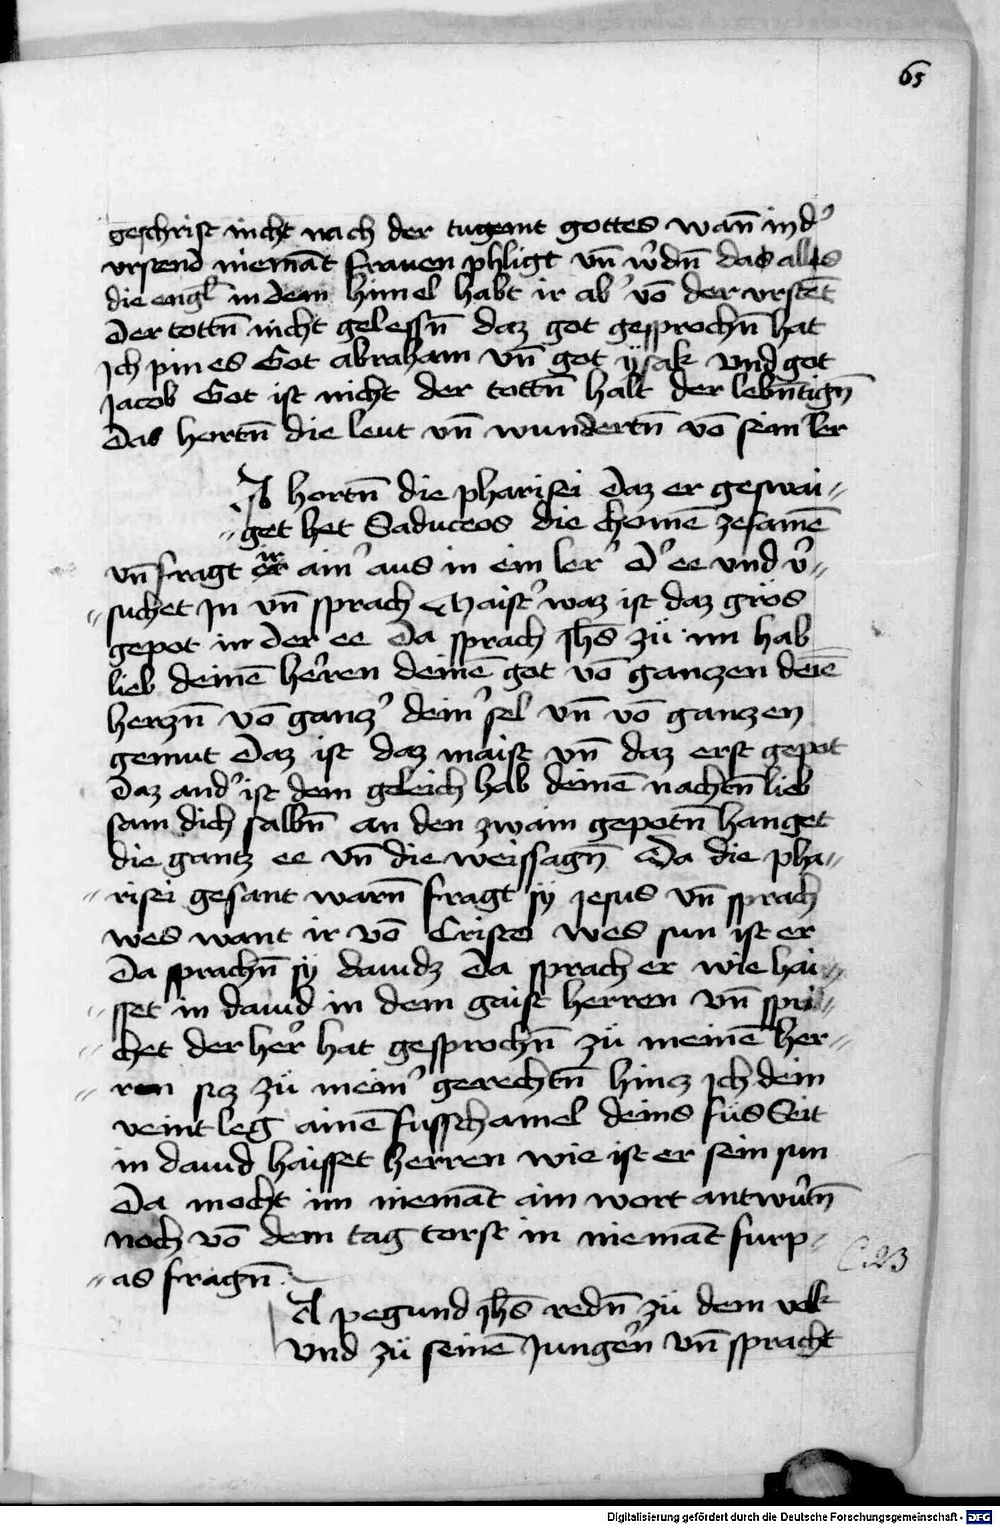 65
geschrift nicht nach der tugent gottes wan̄ in d'
vrstend niemāt frauen phligt vn̄ w'dn̄ das alles
die engl in dem himel habt ir ab' vō der vrstēt
Der tottn̄ nicht gelessn̄ daz got gesprochn̄ hat
Ich pin es Got abraham vn̄ got ÿsak vnd got
Jacob Got ist nicht der tottn̄ halt der lebn̄tign̄
Das hortn̄ die leut vn̄ wundertn̄ vō seim ler
A hortn̄ die pharisei Daz er geswai〃
〃get het Saduceos die chomē zesamē
vn̄ fragt ir ain' aus in ein ler' D' ee vnd v'〃
〃suchet In vn̄ sprach Maist' waz ist daz grös
gepot in der ee Da sprach Jh̄s zü im hab
lieb deinē herren deinē got vō ganczen deīē
herczn̄ vō gancz' dein' sel vn̄ vō ganczen
gemut Daz ist daz maist vn̄ daz erst gepot
Daz and' ist dem geleich hab deinē nachstn̄ lieb
sam dich salbn̄ an den zwain gepotn̄ hanget
die gantz ee vn̄ die weissagn̄ Da die pha〃
〃risei gesant warn̄ fragt sÿ Jesus vn̄ sprach
wes want ir vō Cristo wes sun ist er
Da sprachn̄ sÿ dauidz Da sprach er wie hai〃
〃sset in dauid in dem gaist herren vn̄ spri〃
〃chet der her' hat gesprochn̄ zü meinē her〃
〃ren sicz zü mein' gerechtn̄ hincz ich dein
veint leg ainē fusschamel deins füs Seit
in dauid haisset herren wie ist er sein sun
Da mocht im niemāt ain wort antwurtn̄
noch vō dem tag torst in niemāt furp〃
〃as fragn̄
C. 23
A pegund Jh̄s redn̄ zü dem volk
vnd zü seinē Jungern̄ vn̄ spracht
Digitalisierung gefördert durch die Deutsche Forschungsgemeinschaft - DFG